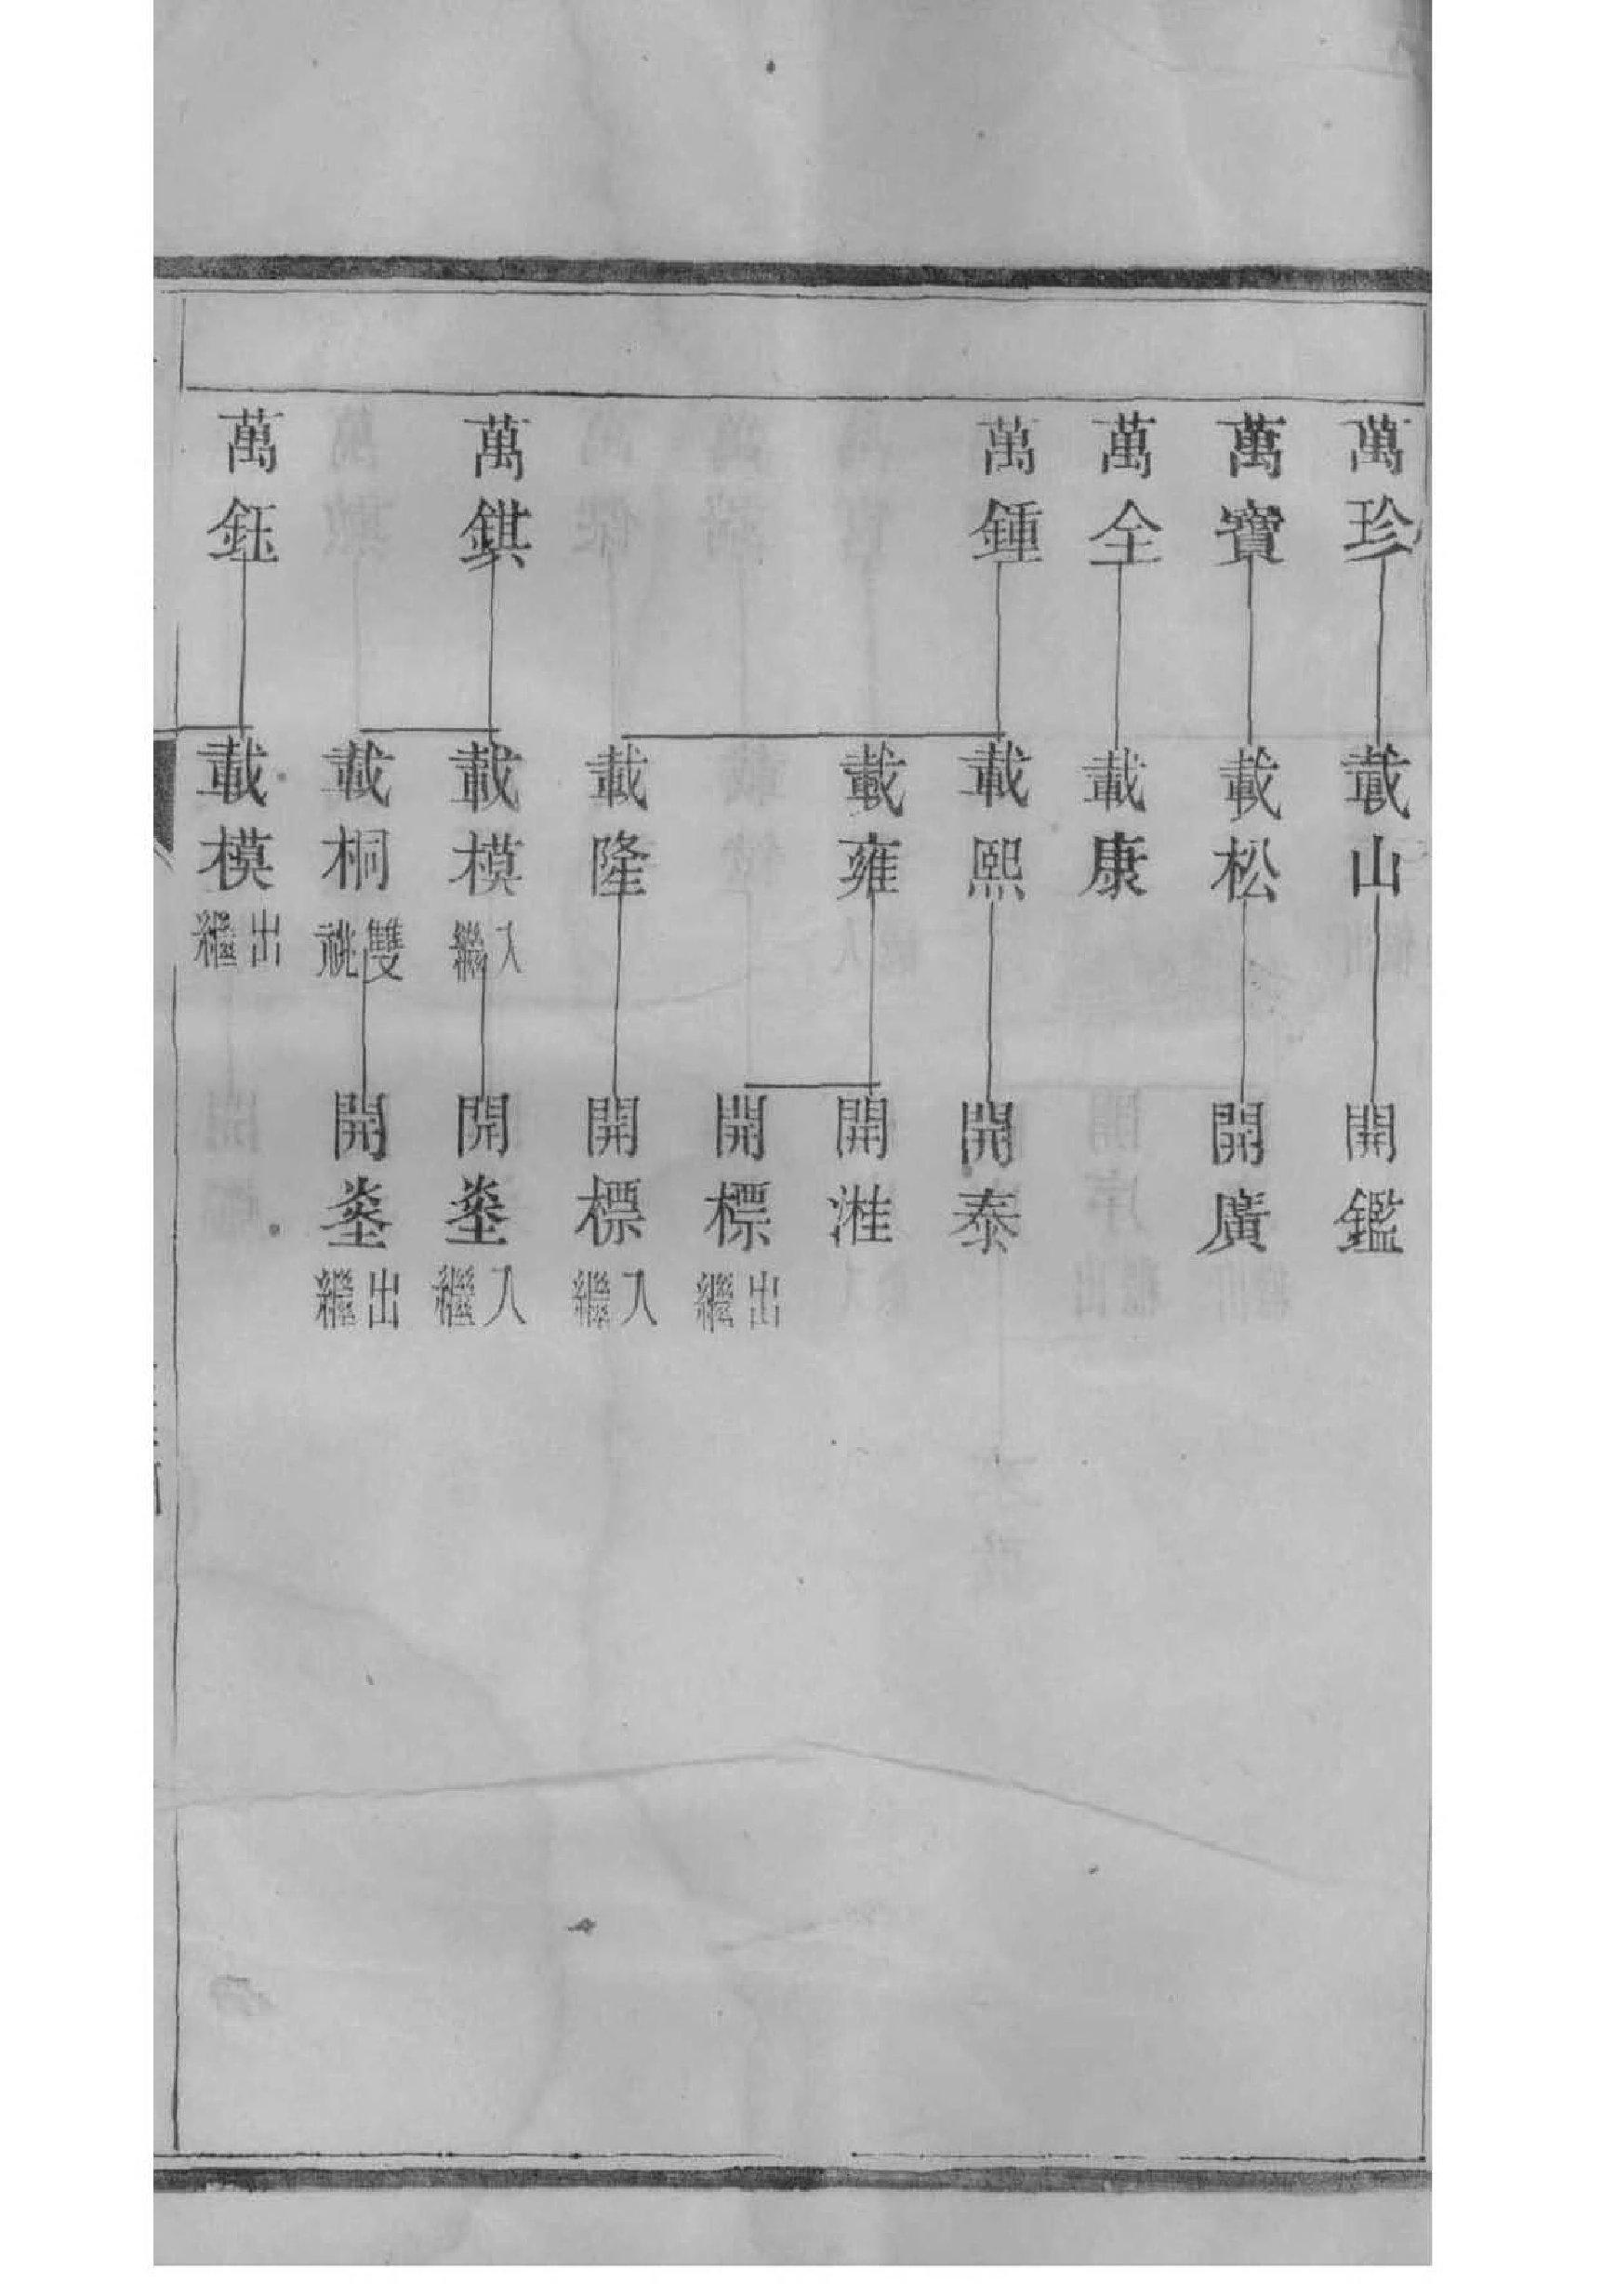 萬珍
載山
開鑑
萬寶
載松
開廣
萬全
載康
萬鍾
載熙
開泰
載雍
開漼
開標
出繼
載隆
開標
入繼
萬錤
載模
入繼
開埊
入繼
載桐
雙祧
開埊
出繼
萬鈺
載模
出繼